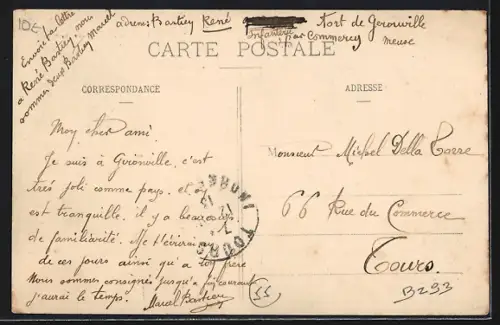 10€
Envoie ta lettre
a René Bastiey, nous
sommes deux Bastiey Marcel
adress Bastiey René
Infanterie
Fort de Gironville
par Commercy
meuse
CARTE POSTALE
CORRESPONDANCE
ADRESSE
Moy cher ami.
Je suis à Gironville, c'est
très joli comme pays, et
est tranquille, il y a beaucoup
de familiarité. Je t'écrirai
de ces jours ainsi qu'a ton frère
Nous sommes consignés jusqu'a
j'aurai le temps. Marcel Bastiey
Monsieur Michel Della Torre
66 Rue du Commerce
Tours.
TOURS
55
B293